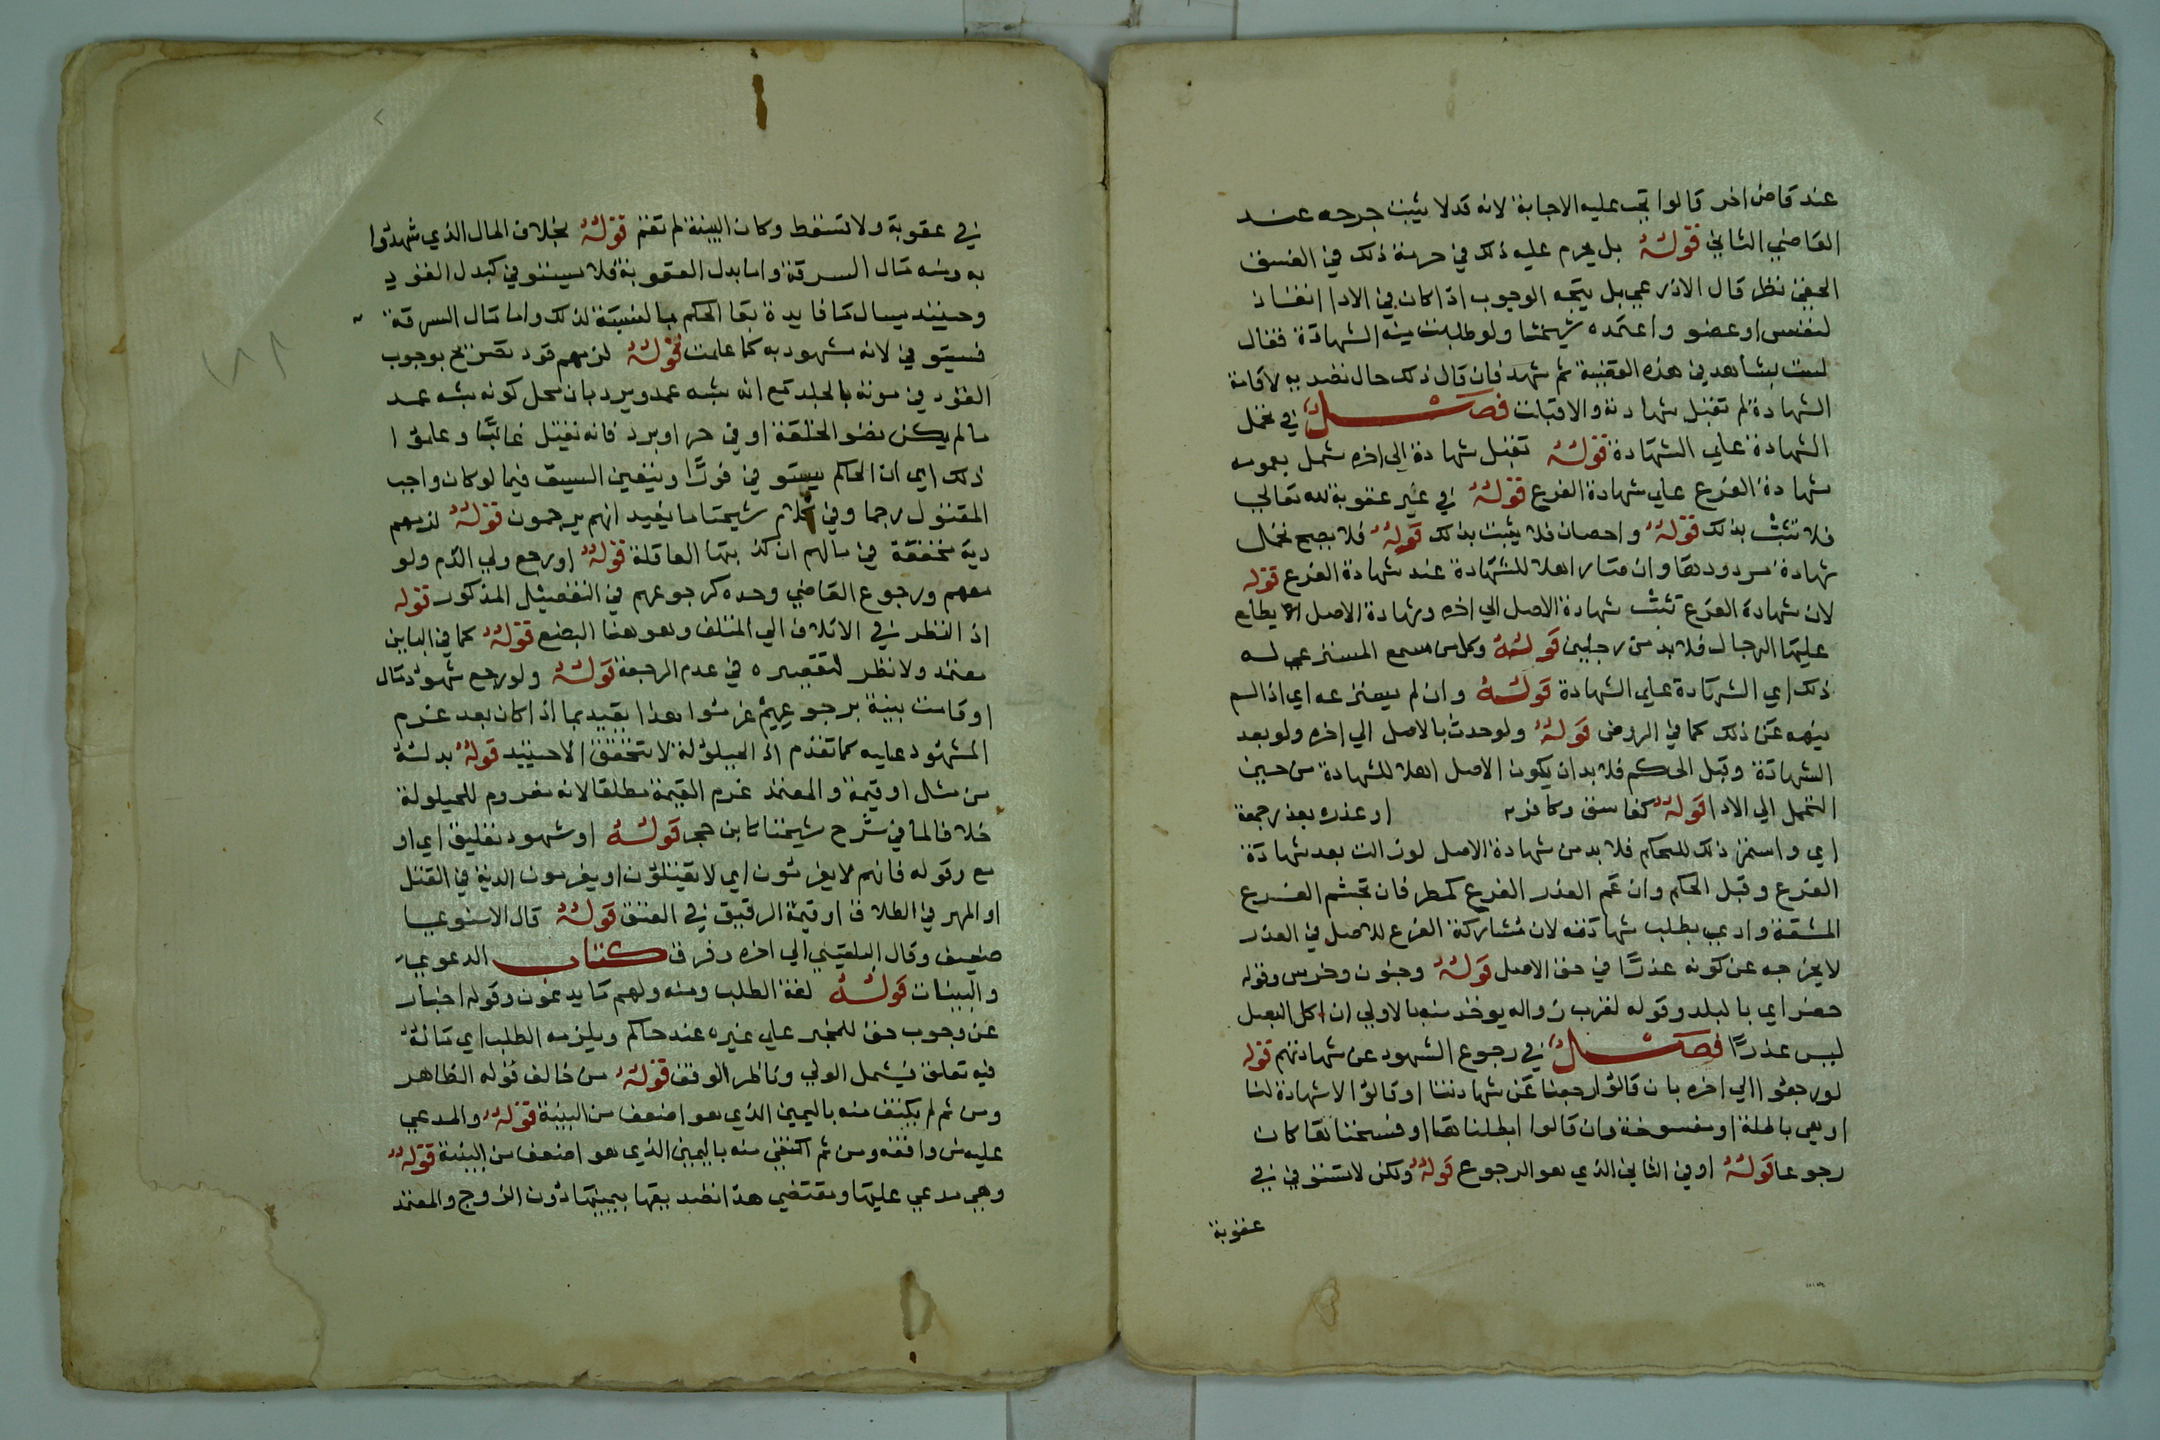 عند قاض اخر قالوا تجب عليه الاجابة لانه قد لا يثبت جرحه عند
القاضي الثاني قوله بل يحرم عليه ذلك في حرمة ذلك في الفسق
الخفي نظر قال الاذرعي بل يتجه الوجوب اذا كان في الادا انقاذ
لنفس او عضو واعتمده شيخنا ولو طلبت منه الشهادة فقال
لست بشاهد في هذه القضية ثم شهد فان قال ذلك حال تصديه لاقامة
الشهادة لم تقبل شهادته والا قبلت فصل في تحمل
الشهادة علي الشهادة قوله تقبل شهادة الي اخره شمل بعمومه
شهادة الفرع علي شهادة الفرع قوله في غير عقوبة لله تعالي
فلا تثبت بذلك قوله واحصان فلا يثبت بذلك قوله فلا يصح تحمل
شهادة مردودها وان صار اهلا للشهادة عند شهادة الفرع قوله
لان شهادة الفرع تثبت شهادة الاصل الي اخره وشهادة الاصل لا يطلع
عليها الرجال فلا بد من رجلين قوله وكل من سمع المسترعي له
ذلك اي الشهادة علي الشهادة قوله وان لم يسترعه اي اذا لم
ينهه عن ذلك كما في الروض قوله ولو حدث بالاصل الي اخره ولو بعد
الشهادة وقبل الحكم فلا بد ان يكون الاصل اهلا للشهادة من حين
التحمل الي الادا قوله كفاسق وكافر او عذره بعد رجمعة
اي واستمر ذلك للحكم فلا بد من شهادة الاصل لو زالت بعد شهادة
الفرع وقبل الحكم وان عم العذر الفرع كمطر فان تجشم الفرع
المشقة وادي بطلب شهادته لان مشاركة الفرع للاصل في العذر
لا يخرجه عن كونه عذرا في حق الاصل قوله وجنون وخرس وقوله
حضر اي بالبلد وقوله لقرب زواله يوخذ منه بالاولي ان اكل البصل
ليس عذرا فصل في رجوع الشهود عن شهادتهم قوله
لو رجعوا الي اخره بان قالوا رجعنا عن شهادتنا او قالوا لا شهادة لنا
او هي باطلة او مفسوخة وان قالوا ابطلناها او فسخناها كان
رجوعا قوله او في الثاني الذي هو الرجوع قوله ولكن لا تستوفي في
عقوبة
في عقوبة ولا تسقط وكان البينة لم تقم قوله بخلاف المال الذي شهدوا
به ومنه مال السرقة واما بدل العقوبة فلا يستوفي كبدل القود
وحينئذ يسال ما فايدة بقا الحكم بالنسبة لذلك واما مال السرقة
فسيتوفي لانه مشهود به كما علمت قوله لزمهم قود تصريح بوجوب
القود في موته بالجلد مع انه شبه عمد ويرد بان محل كونه شبه عمد
ما لم يكن نضو الخلقة او في حر او برد فانه يقتل غالبا وعلموا
ذلك اي ان الحاكم يستوفي فورا ويتعين السيف فيما لو كان واجب
المقتول رجما وفي كلام شيخنا ما يفيد انهم يرجمون قوله لزمهم
دية مخففة في مالهم ان كذبتها العاقلة قوله او رجع ولي الدم ولو
معهم ورجوع القاضي وحده كرجوعهم في التفصيل المذكور قوله
اذ النظر في الاتلاف الي المتلف وهو هنا البضع قوله كما في البابين
معتمد ولا نظر لتقصيره في عدم الرجعة قوله ولو رجع شهود مال
او قامت بينة برجوعهم غرموا هذا يقيد بما اذا كان بعد غرم
المشهود عليه كما تقدم اذ الحيلولة لا تتحقق الا حينيد قوله بدله
من مثل او قيمة والمعتمد غرم القيمة مطلقا لانه مغروم للحيلولة
خلافا لما في شرح شيخنا كابن حجر قوله او شهود تعليق اي او
مع وقوله فانهم لا يغرمون اي لا يقتلون او يغرمون الدية في القتل
او المهر في الطلاق او قيمة الرقيق في العتق قوله قال الاسنوي
ضعيف وقال البلقيني الي اخره وفرق كتاب الدعوي
والبينات قوله لغة الطلب ومنه ولهم ما يدعون وقوله اخبار
عن وجوب حق للمخبر علي غيره عند حاكم ويلزمه الطلب اي ماله
فيه تعلق فيشمل الولي وناظر الوقف قوله من خالف قوله الظاهر
ومن ثم لم يكتف منه باليمين الذي هو اضعف من البينة قوله والمدعي
عليه من وافقه ومن ثم اكتفي منه باليمين الذي هو اضعف من البينة قوله
وهي مدعي عليها ومقتضي هذا تصديقها بيمينها دون الزوج والمعتمد